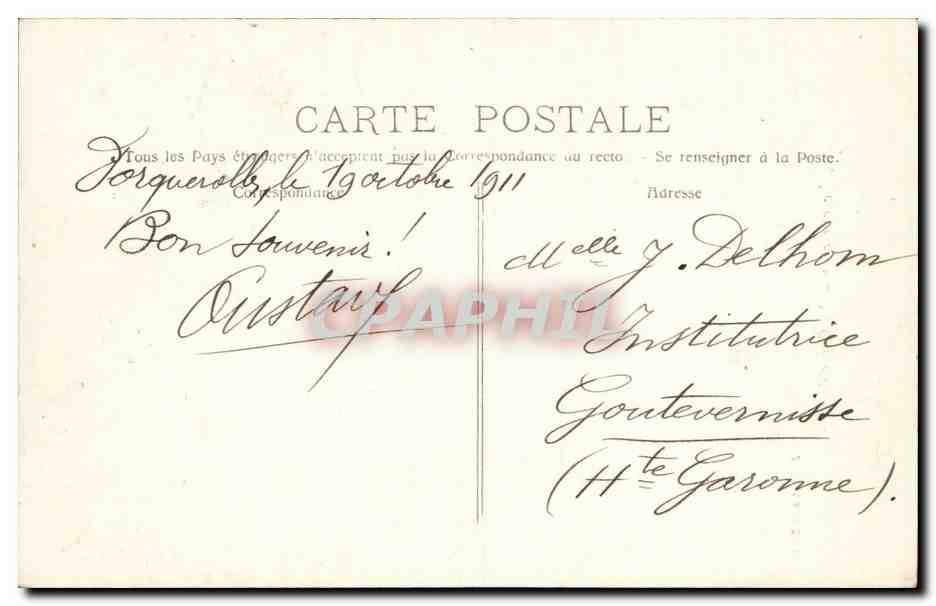 CARTE POSTALE
Tous les Pays étrangers n'acceptent pas la Correspondance au recto. - Se renseigner à la Poste.
le 19 octobre 1911
Correspondance
Bon souvenir!
Adresse
Melle J. Delhom
Institutrice
Goutevernisse
(Hte Garonne).
CPAPHIL